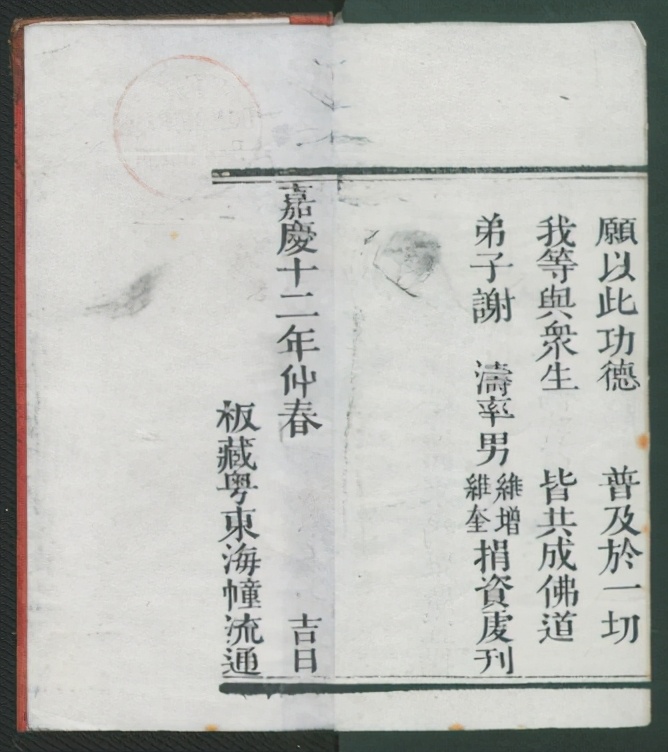 願以此功德　普及於一切
我等與衆生　皆共成佛道
弟子謝　濤率男維增維奎捐資虔刊
嘉慶十二年仲春　吉日
板藏粤東海幢流通